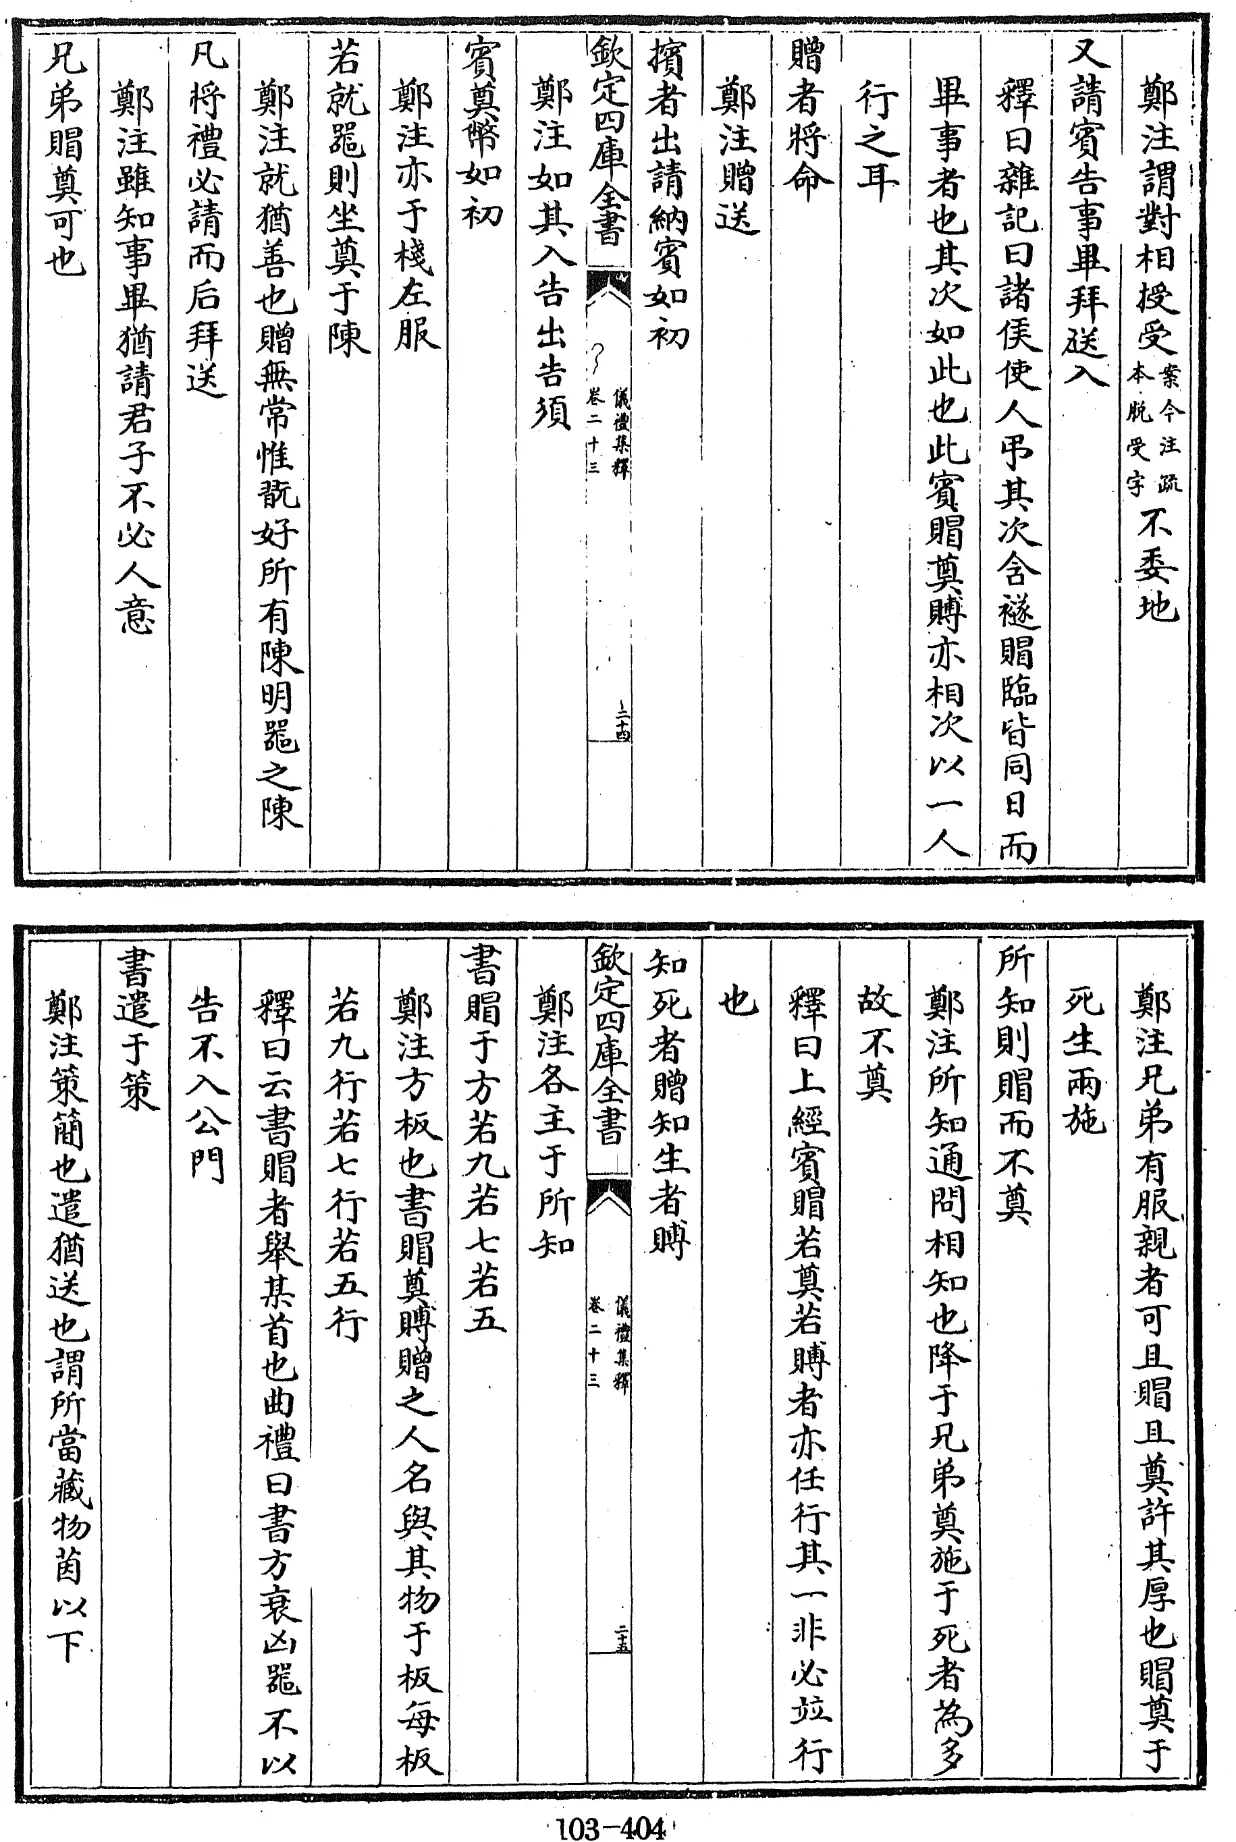 鄭注謂對相授受案今注疏本脱受字不委地
又請賓告事畢拜送入
釋曰雜記曰諸侯使人弔其次含襚賵臨皆同日而
畢事者也其次如此也此賓賵奠賻亦相次以一人
行之耳
贈者將命
鄭注贈送
擯者出請納賓如初
欽定四庫全書
儀禮集釋
卷二十三
二十四
鄭注如其入告出告須
賓奠幣如初
鄭注亦于棧左服
若就器則坐奠于陳
鄭注就猶善也贈無常惟翫好所有陳明器之陳
凡将禮必請而后拜送
鄭注雖知事畢猶請君子不必人意
兄弟賵奠可也
鄭注兄弟有服親者可且賵且奠許其厚也賵奠于
死生兩施
所知則賵而不奠
鄭注所知通問相知也降于兄弟奠施于死者為多
故不奠
釋曰上經賓賵若奠若賻者亦任行其一非必竝行
也
知死者贈知生者賻
欽定四庫全書
儀禮集釋
卷二十三
二十五
鄭注各主于所知
書賵于方若九若七若五
鄭注方板也書賵奠賻贈之人名與其物于板每板
若九行若七行若五行
釋曰云書賵者舉其首也曲禮曰書方衰凶器不以
告不入公門
書遣于策
鄭注策簡也遣猶送也謂所當藏物茵以下
103-404